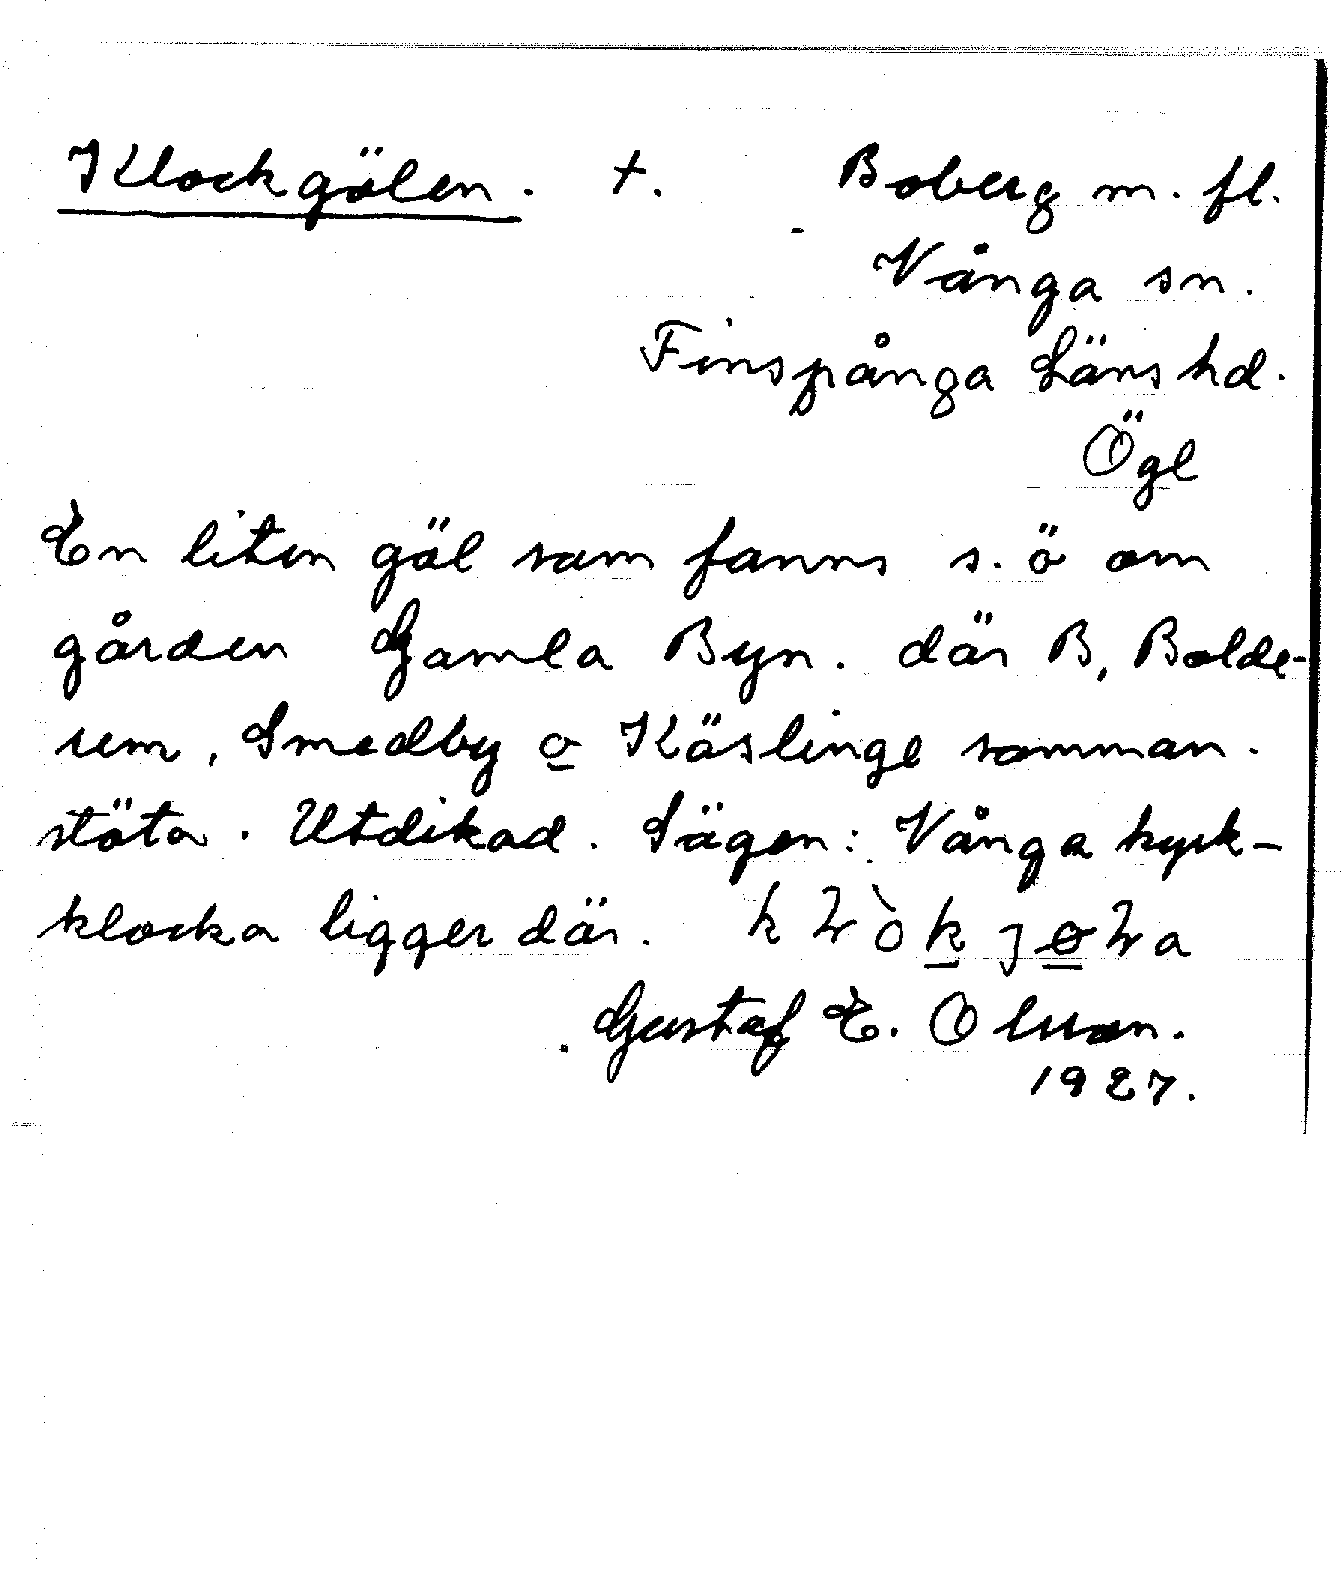 Klockgölen. +. Boberg m. fl.
Vånga sn.
Finspånga Läns hd.
Ögl
En liten göl som fanns s. ö om
gården Gamla Byn. där B, Bolde-
rum, Smedby o Käslinge samman-
stöta. Utdikad. Sägen: Vånga kyrk-
klocka ligger där.
Gustaf E. Olsson.
1927.